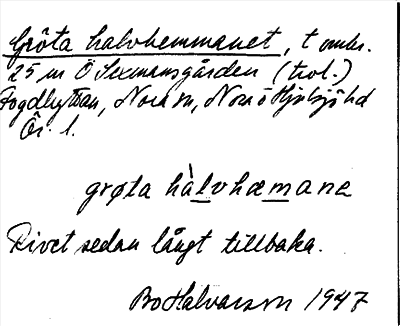 Gröta halvhemmanet, t omkr.
25 m Ö Sexmansgården (trol.)
Fogdhyttan, Nora sn, Nora o Hjulsjö hd
Ör. l.
grøta hàlvhæmane
Rivet sedan långt tillbaka.
Bo Halvarson 1947